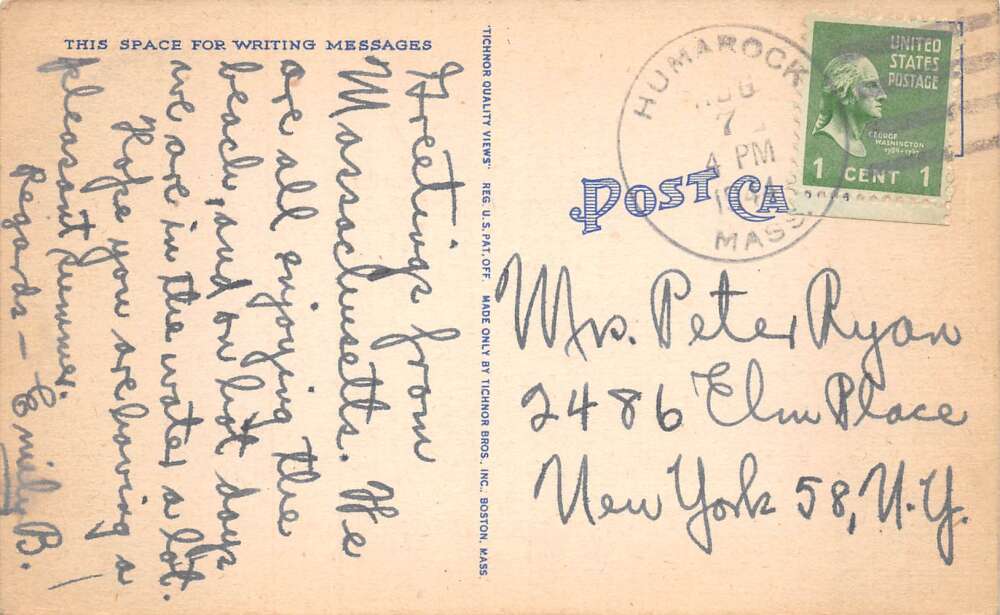 THIS SPACE FOR WRITING MESSAGES
Greetings from
Massachusetts. We
are all enjoying the
beach, and on hot days
we are in the water a lot.
Hope you are having a
pleasant summer.
Regards — Emily B.
"TICHNOR QUALITY VIEWS" REG. U. S. PAT. OFF. MADE ONLY BY TICHNOR BROS., INC., BOSTON, MASS.
POST CA
HUMAROCK
AUG
7
4 PM
MASS.
UNITED
STATES
POSTAGE
GEORGE
WASHINGTON
1789-1797
1 CENT 1
Mrs. Peter Ryan
2486 Elm Place
New York 58, N.Y.